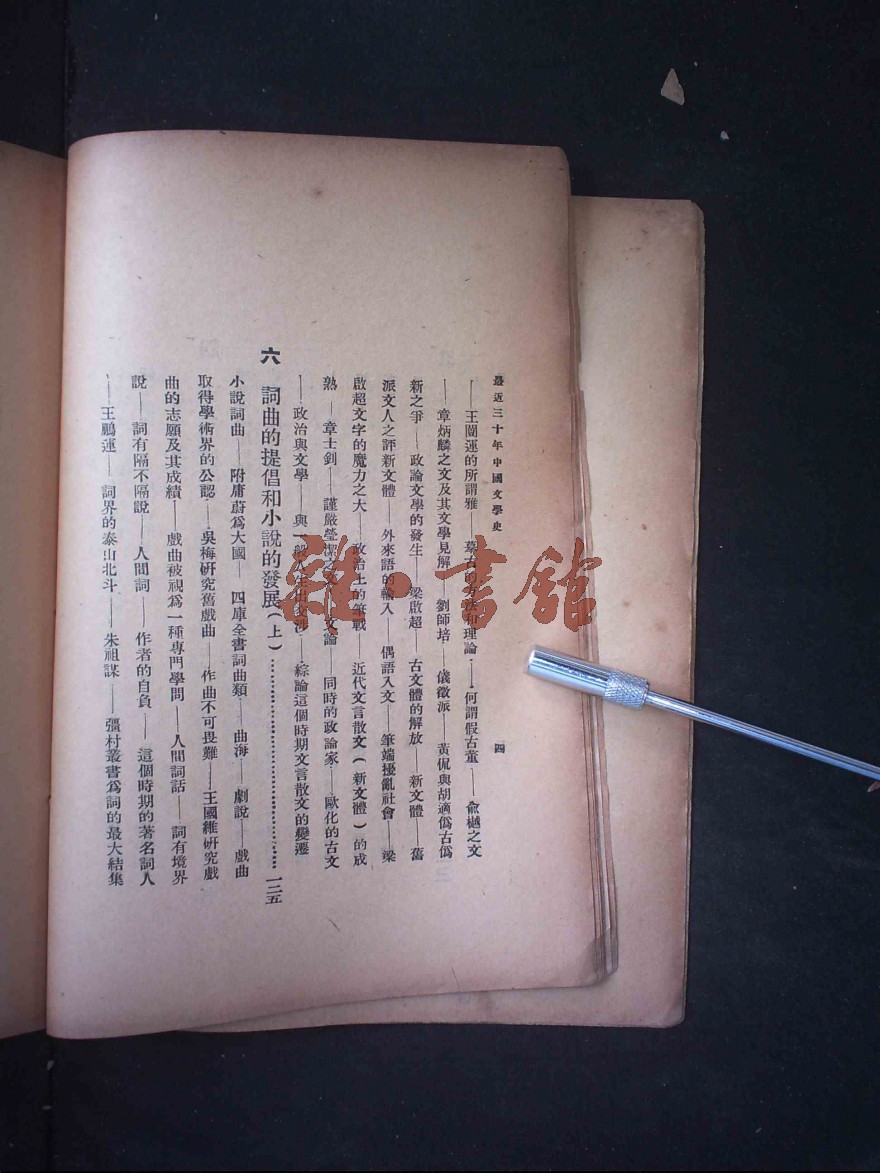 最近三十年中國文學史
四
——王闓運的所謂雅——摹古的方法和理論——何謂假古董——兪樾之文
——章炳麟之文及其文學見解——劉師培——儀徵派——黃侃與胡適僞古僞
新之爭——政論文學的發生——梁啟超——古文體的解放——新文體——舊
派文人之評新文體——外來語的輸入——偶語入文——筆端擾亂社會——梁
啟超文字的魔力之大——政治上的筆戰——近代文言散文(新文體)的成
熟——章士釗——謹嚴瑩潔之文——文論——同時的政論家——歐化的古文
——政治與文學——與一般人生出交涉——綜論這個時期文言散文的變遷
六 詞曲的提倡和小說的發展(上)……一二五
小說詞曲——附庸蔚爲大國——四庫全書詞曲類——曲海——劇說——戲曲
取得學術界的公認——吳梅硏究舊戲曲——作曲不可畏難——王國維硏究戲
曲的志願及其成績——戲曲被視爲一種專門學問——人間詞話——詞有境界
說——詞有隔不隔說——人間詞——作者的自負——這個時期的著名詞人
——王鵬運——詞界的泰山北斗——朱祖謀——彊村叢書爲詞的最大結集
雜·書館